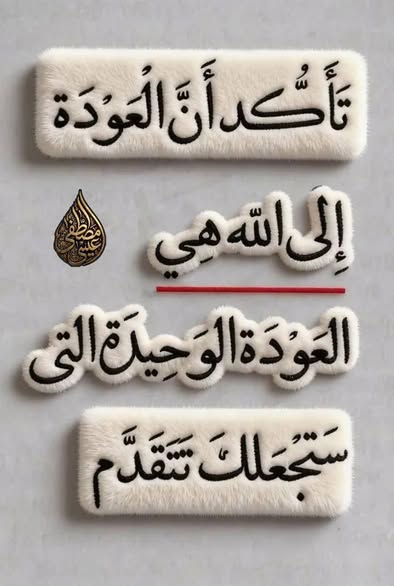 تَأَكُّد أَنَّ الْعَوْدَة
إِلى الله هِي
العَوْدَة الوَحِيدَة التي
سَتَجْعَلكَ تَتَقَدَّم
مصطفى